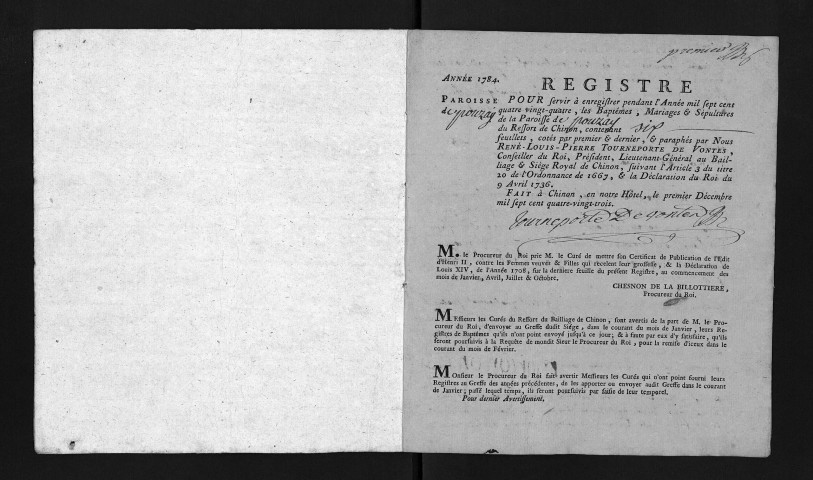 premier
ANNÉE 1784.
REGISTRE
PAROISSE
de pouzay
POUR servir à enregistrer pendant l'Année mil sept cens
quatre vingt-quatre, les Baptêmes, Mariages & Sépultures
de la Paroisse de pouzay
du Ressort de Chinon, contenant six
feuillets, cotés par premier & dernier, & paraphés par Nous
RENÉ-LOUIS-PIERRE TOURNEPORTE DE VONTES,
Conseiller du Roi, Président, Lieutenant-Général au Bail-
liage & Siége Royal de Chinon, suivant l'Article 3 du titre
20 de l'Ordonnance de 1667, & la Déclaration du Roi du
9 Avril 1736.
FAIT à Chinon, en notre Hôtel, le premier Décembre
mil sept cent quatre-vingt-trois.
Tourneporte De vontes
M. le Procureur du Roi prie M. le Curé de mettre son Certificat de Publication de l'Edit
d'Henri II, contre les Femmes veuves & Filles qui recelent leur grossesse, & la Déclaration de
Louis XIV, de l'Année 1708, sur la derniere feuille du présent Registre, au commencement des
mois de Janvier, Avril, Juillet & Octobre.
CHESNON DE LA BILLOTTIERE,
Procureur du Roi.
MEssieurs les Curés du Ressort du Bailliage de Chinon, sont avertis de la part de M. le Pro-
cureur du Roi, d'envoyer au Greffe dudit Siége, dans le courant du mois de Janvier, leurs Re-
gistres de Baptêmes qu'ils n'ont point envoyé jusqu'à ce jour; & à faute par eux d'y satisfaire, qu'ils
seront poursuivis à la Requête de mondit Sieur le Procureur du Roi, pour la remise d'iceux dans le
courant du mois de Février.
Monsieur le Procureur du Roi fait avertir Messieurs les Curés qui n'ont point fourni leurs
Registres au Greffe des années précédentes, de les apporter ou envoyer audit Greffe dans le courant
de Janvier; passé lequel temps, ils seront poursuivis par saisie de leur temporel.
Pour dernier Avertissement.